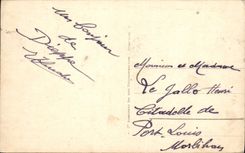 un bonjour
de
Dieppe
Monsieur et Madame
Le Jallo Henri
Citadelle de
Port Louis
Morbihan